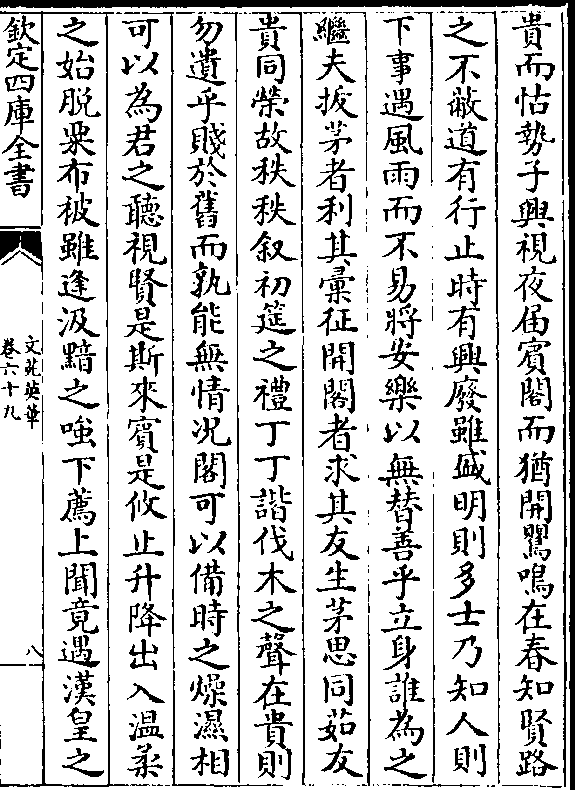 貴而怙勢子興視夜届賓閣而猶開鸎鳴在春知賢路
之不蔽道有行止時有興廢雖盛明則多士乃知人則
下事遇風雨而不易將安樂以無替善乎立身誰為之
繼夫拔茅者利其彚征開閣者求其友生茅思同茹友
貴同榮故秩秩叙初筵之禮丁丁諧伐木之聲在貴則
勿遺乎賤於舊而孰能無情况閣可以備時之燥濕相
可以為君之聽視賢是斯來賓是攸止升降出入温柔
之始脱粟布被雖逢汲黯之嗤下薦上聞竟遇漢皇之
欽定四庫全書
文苑英華
卷六十九
八